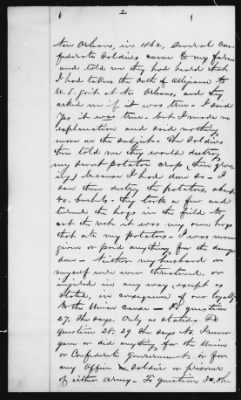 2
New Orleans, in 1862, Several Con-
federate Soldiers came to my farm
and told me they had heard that
I had taken the Oath of Allegiance to
U.S. Govt at New Orleans, and they
asked me if it was true - I said
yes it was true - but I made no
explanation and said nothing
more on the subject. The Soldiers
then told me they would destroy
my sweet potatoe crop (then grow
ing) because I had done so - I
saw them destroy the potatoes, about
bushels - they took a few and
turned the hogs in the field to
eat the rest it was my own hogs
that ate my potatoes - I was never
given or paid anything for the damage
done - Neither my husband or
myself were ever threatened, or
injured in any way, except as
stated, in consequence of our loyalty
to the Union Cause - To question
27. She says. Only as stated. To
question 28. 29 She says No I never
gave or did anything for the Union
or Confederate Governments or for
any Officer Soldier or prisoner
of either Army - To question 30, She